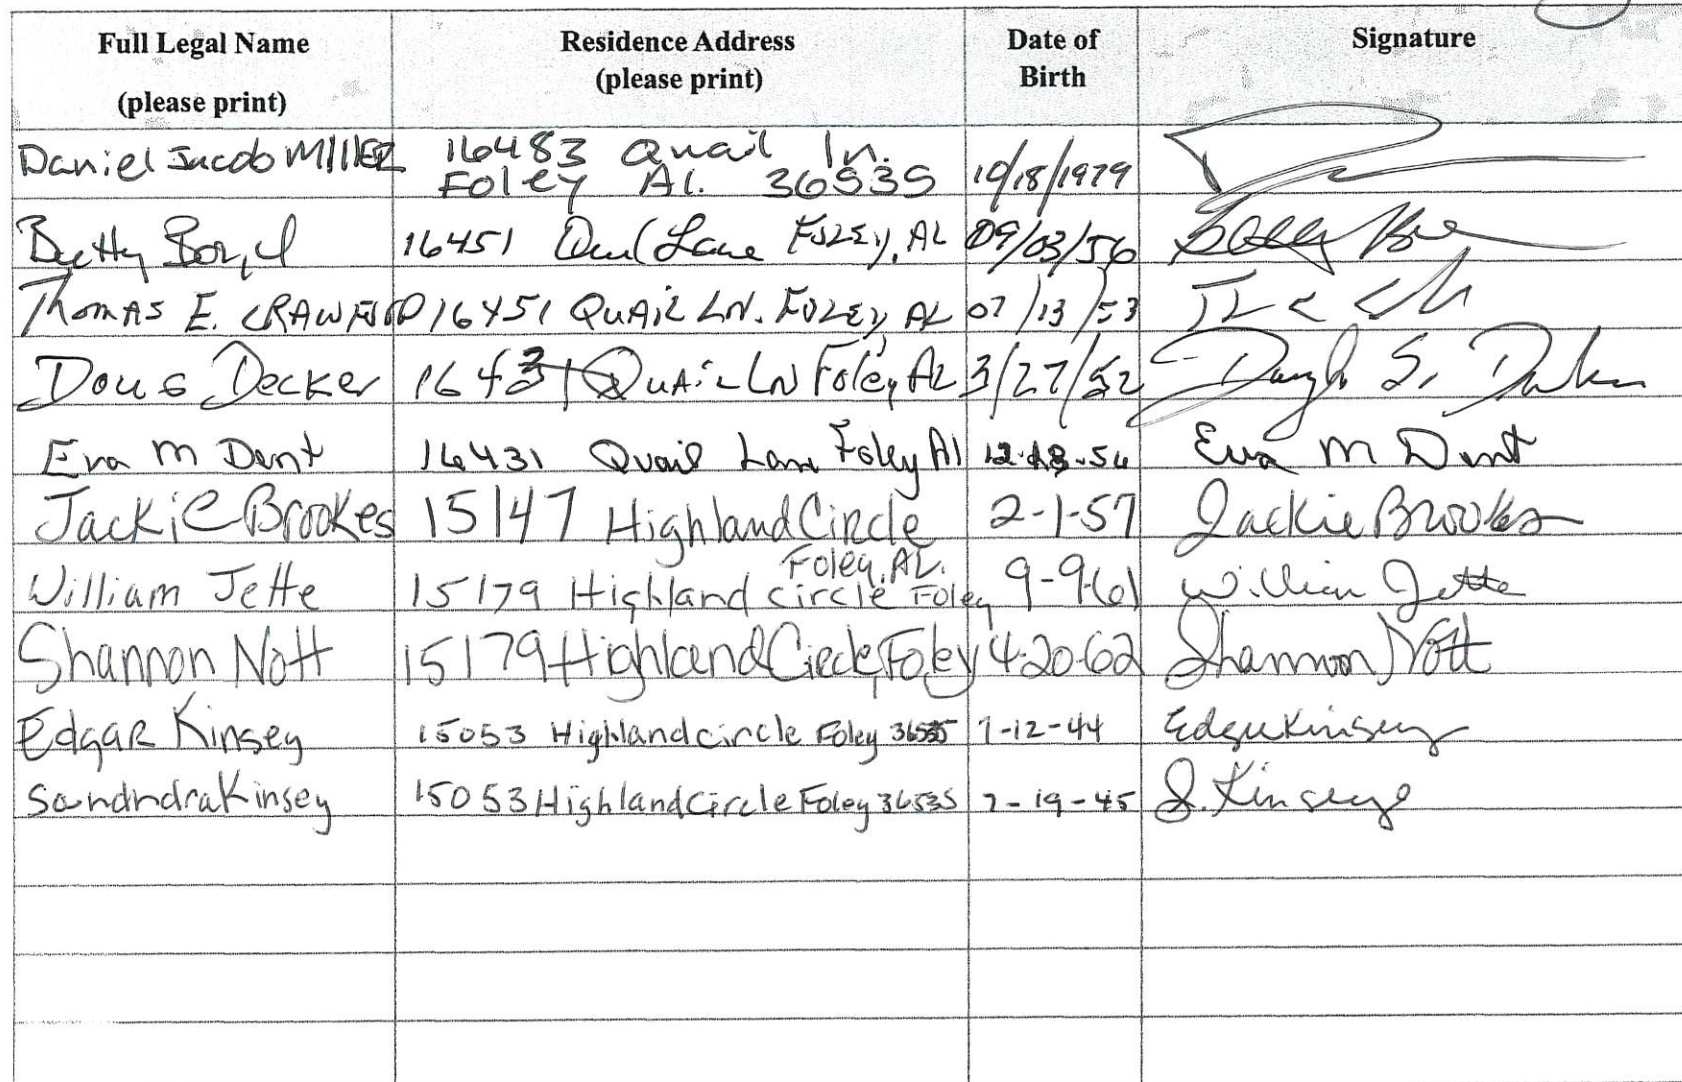 Full Legal Name Residence Address Date of Signature
(please print) (please print) Birth
Daniel Jacob MILLER 16483 Quail ln. 10/18/1979
Foley Al. 36535
Betty 16451 Lane FOLEY, AL 09/03/56
Thomas E. CRAWFORD 16451 QUAIL LN. FOLEY, AL 07/13/53
Doug Decker 1643 QUAIL LN Foley AL 3/27/52
Eva M Dent 16431 Quail Lane Foley Al 54 Eva M Dent
Jackie Brookes 15147 Highland Circle 2-1-57 Jackie Brookes
Foley, AL.
William Jette 15179 Highland circle Foley 9-9-61 William Jette
Shannon Nott 15179 Highland Circle, Foley 4-20-62 Shannon Nott
Edgar Kinsey 15053 Highland circle Foley 36535 7-12-44 Edgar Kinsey
Sandndra Kinsey 15053 Highland Circle Foley 36535 7-19-45 S. Kinsey